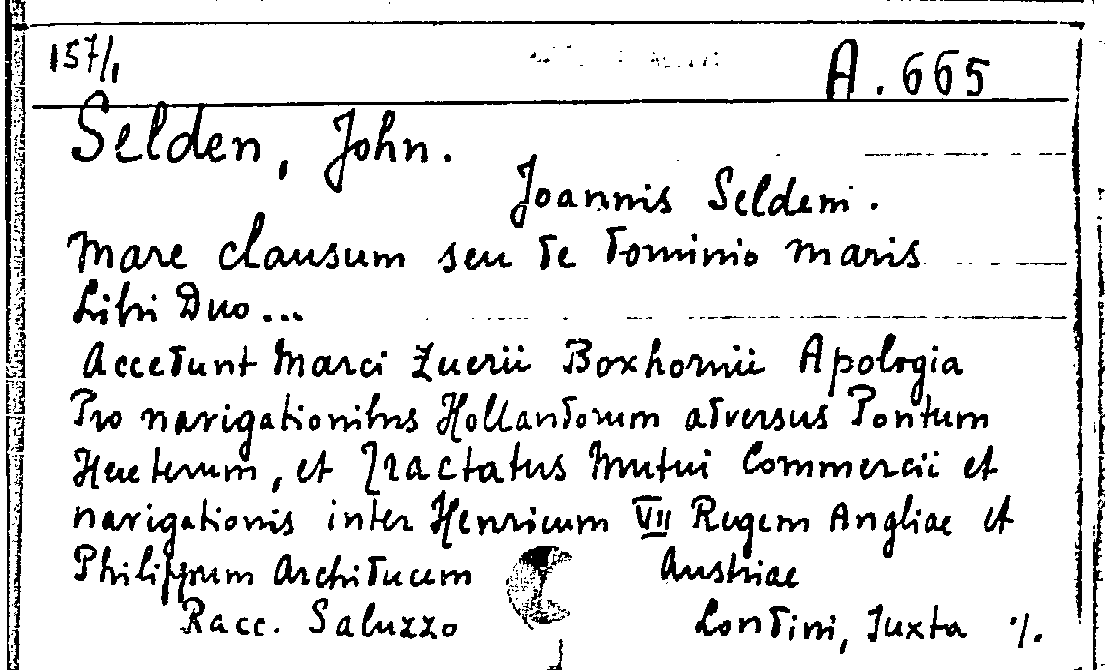 157/1 A. 665
Selden, John.
Joannis Seldeni.
Mare clausum seu de dominio maris
Libri Duo...
Accedunt Marci Zuerii Boxhornii Apologia
Pro navigationibus Hollandorum adversus Pontum
Heuterum, et Tractatus Mutui Commercii et
navigationis inter Henricum VII Regem Angliae et
Philippum Archiducem Austriae
Racc. Saluzzo Londini, Iuxta ·/.